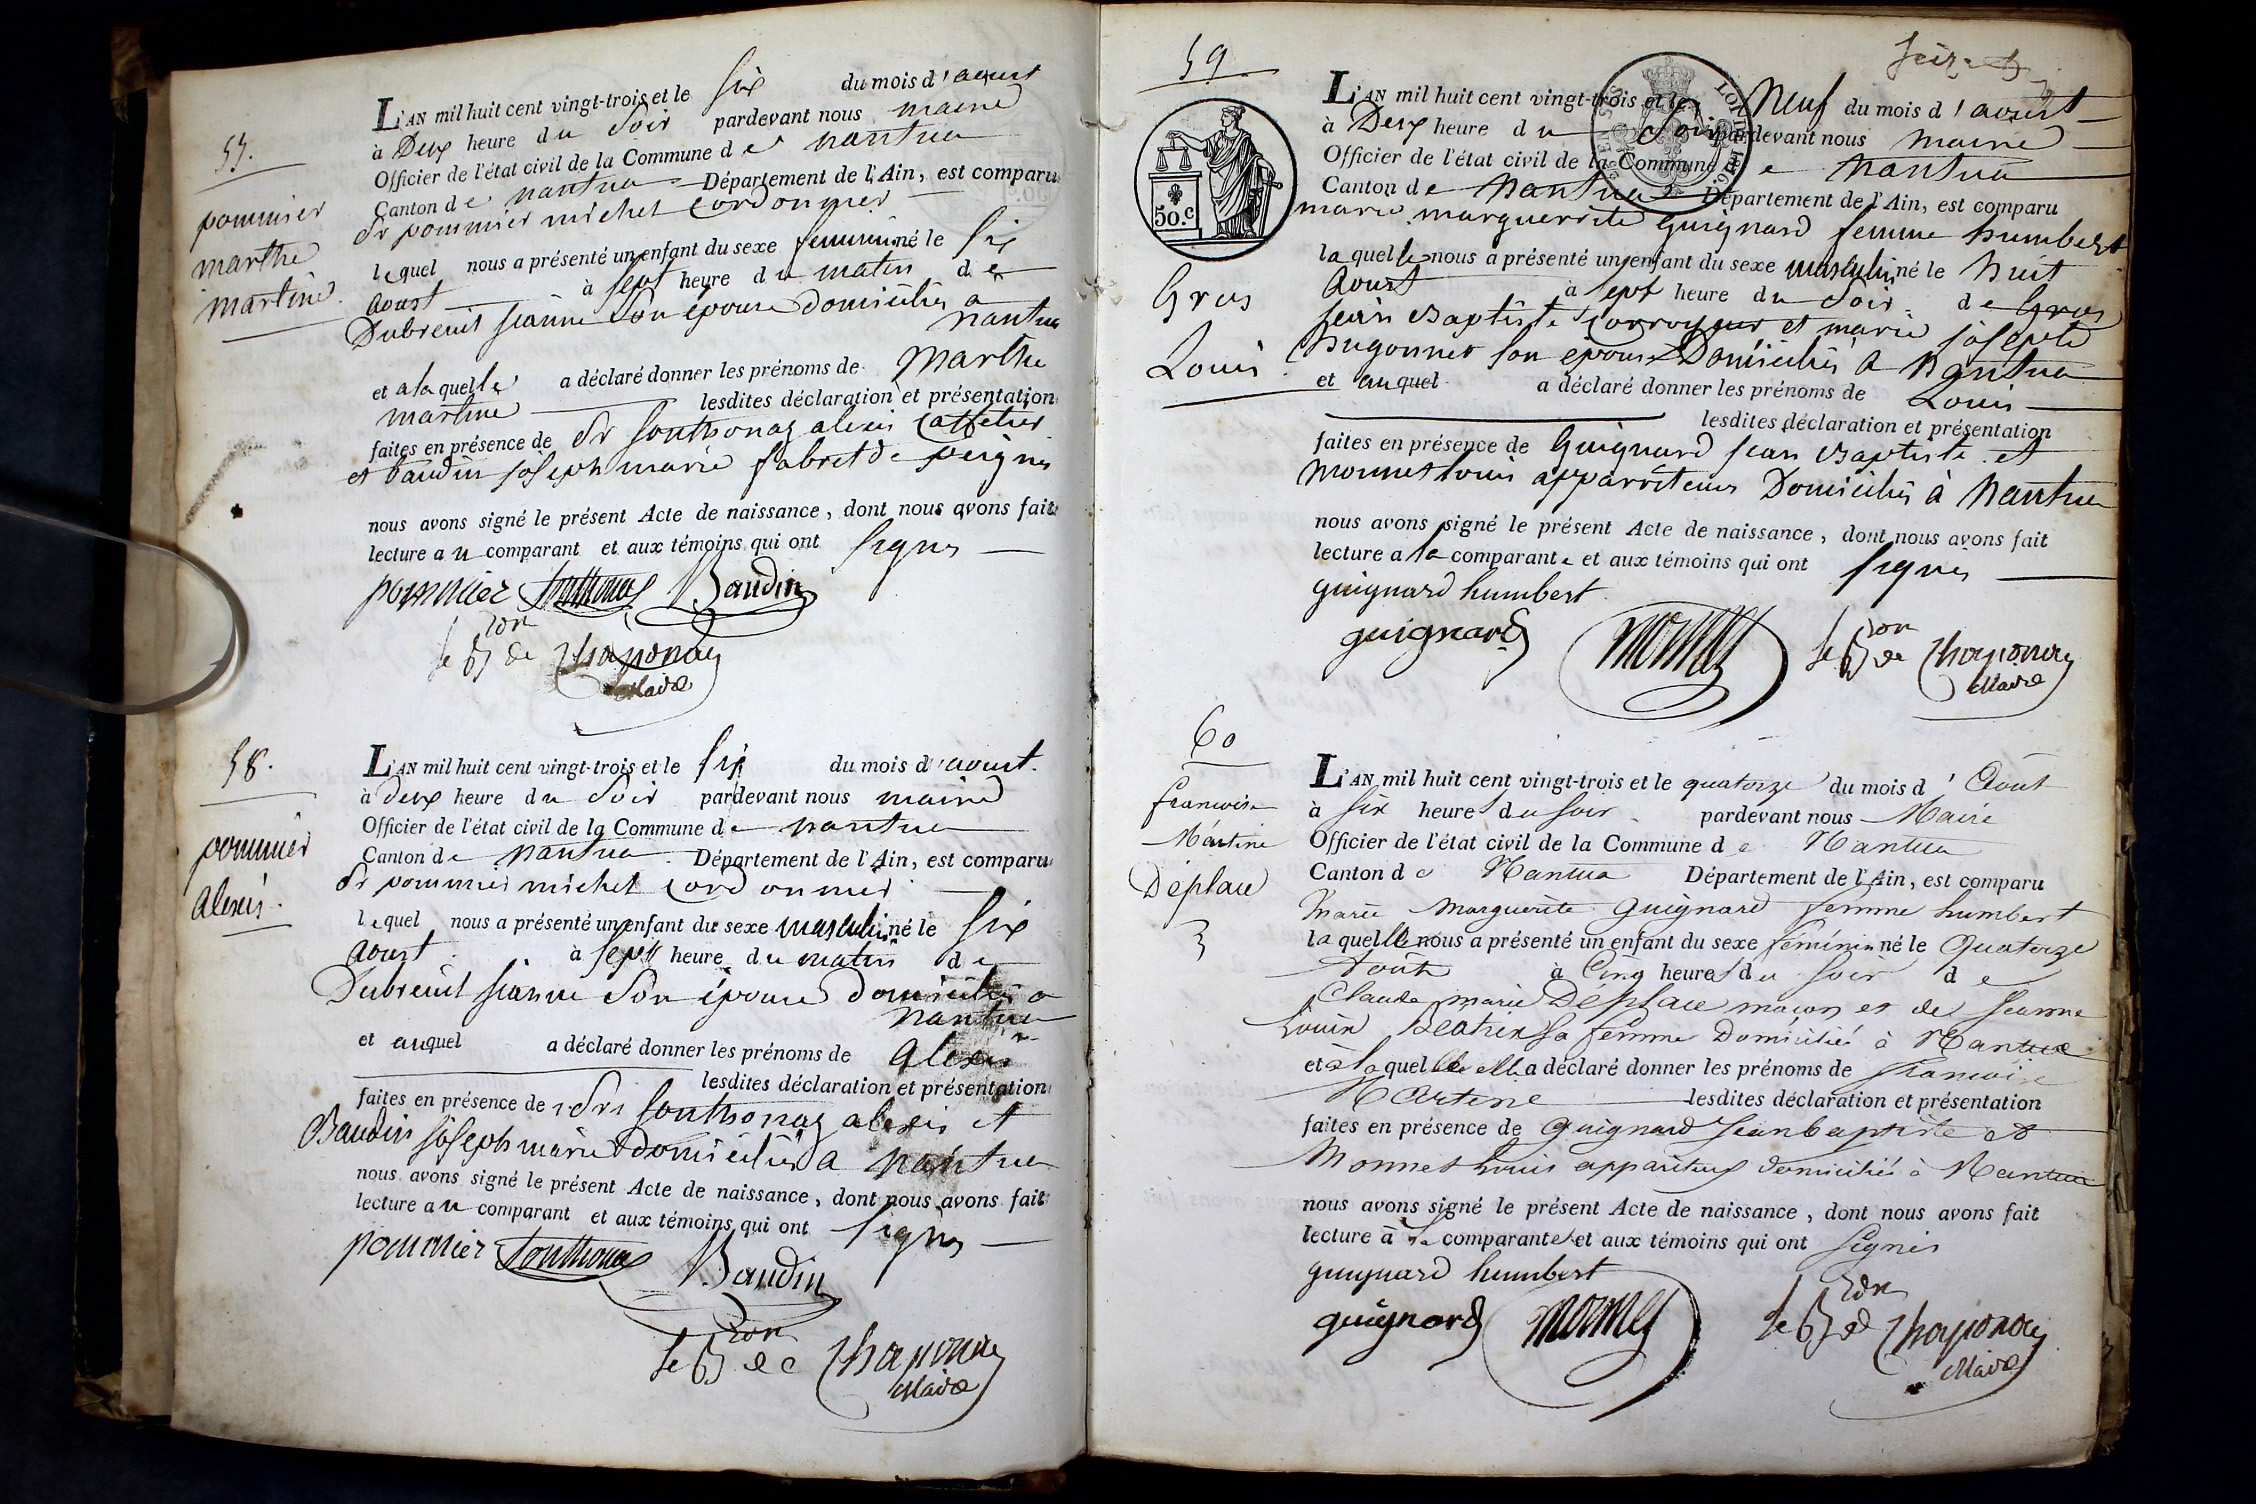 57.
pommier
marthe
martine.
L'AN mil huit cent vingt-trois et le six du mois d'aoust
à Deux heure du Soir pardevant nous maire
Officier de l'état civil de la Commune de nantua
Canton de nantua Département de l'Ain, est comparu
Sr pommier michel Cordonnier
lequel nous a présenté un enfant du sexe feminin né le six
aoust à sept heure du matin de
Dubreuil jeanne Son épouse domiciliés a
nantua
et a laquelle a déclaré donner les prénoms de Marthe
martine lesdites déclaration et présentation
faites en présence de Sr Southonax alexis
et baudin joseph marie fabt de peignes
nous avons signé le présent Acte de naissance, dont nous avons fait
lecture au comparant et aux témoins qui ont signés
pommier Southonax Baudin
le Bon de Chaponay
Maire
58.
pommier
alexis.
L'AN mil huit cent vingt-trois et le six du mois d'aoust.
à deux heure du Soir pardevant nous maire
Officier de l'état civil de la Commune de nantua
Canton de Nantua Département de l'Ain, est comparu
Sr pommier michel cordonnier
lequel nous a présenté un enfant du sexe masculin né le six
aoust à sept heure du matin de
Dubreuil jeanne Son épouse domiciliés a
nantua
et auquel a déclaré donner les prénoms de alexis
lesdites déclaration et présentation
faites en présence de Srs Southonax alexis et
Baudin joseph marie domiciliés a nantua
nous avons signé le présent Acte de naissance, dont nous avons fait
lecture au comparant et aux témoins qui ont signés
pommier Southonax Baudin
le Bon de Chaponay
Maire
59
50.c
Gros
Louis.
L'AN mil huit cent vingt-trois et le Neuf du mois d'aoust
à Deux heure du Soir pardevant nous maire
Officier de l'état civil de la Commune de Nantua
Canton de Nantua Département de l'Ain, est comparu
marie marguerite guignard femme humbert
laquelle nous a présenté un enfant du sexe masculin né le huit
aoust à sept heure du Soir de Gros
jean Baptiste Corroyeur et marie josephte
hugonnet son épouse Domiciliés a Nantua
et auquel a déclaré donner les prénoms de Louis
lesdites déclaration et présentation
faites en présence de Guignard jean Baptiste et
Monnet louis apparriteurs Domiciliés à Nantua
nous avons signé le présent Acte de naissance, dont nous avons fait
lecture a la comparante et aux témoins qui ont signés
guignard humbert
guignard monnet le Bon de Chaponay
Maire
60
francoise
Martine
Déplace
3
L'AN mil huit cent vingt-trois et le quatorze du mois d'Août
à Six heures du soir pardevant nous Maire
Officier de l'état civil de la Commune de Nantua
Canton de Nantua Département de l'Ain, est comparu
Marie Marguerite Guignard femme humbert
laquelle nous a présenté un enfant du sexe féminin né le Quatorze
Août à Cinq heures du Soir de
Claude marie Déplace maçon et de Jeanne
Louise Béatrix Sa femme Domiciliés à Nantua
et à laquelle elle a déclaré donner les prénoms de francoise
Martine lesdites déclaration et présentation
faites en présence de Guignard Jean baptiste et
Monnet Louis appariteurs domiciliés à Nantua
nous avons signé le présent Acte de naissance, dont nous avons fait
lecture à la comparante et aux témoins qui ont signés
guignard humbert
guignard monnet le Bon de Chaponay
Maire